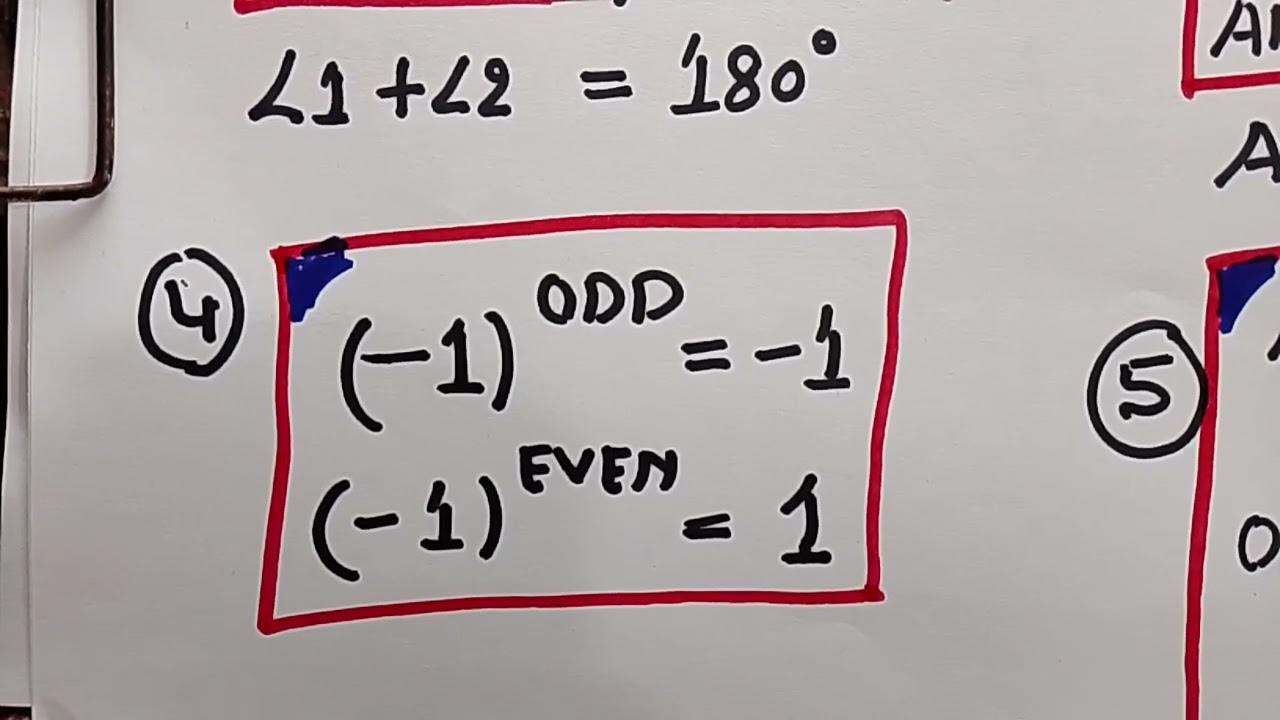 ∠1 + ∠2 = 180°
4
(-1)^ODD = -1
(-1)^EVEN = 1
A
5
O